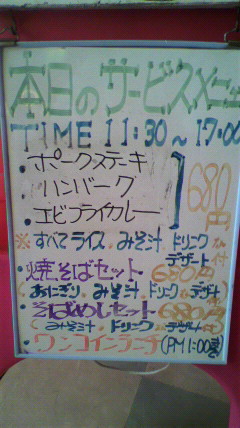 本日のサービスメニュー
TIME 11:30~17:00
・ポークステーキ
・ハンバーグ
・エビフライカレー
680円
※すべてライス、みそ汁、ドリンク
デザート付
・焼そばセット 680円
(おにぎり、みそ汁、ドリンク、デザート付)
・そばめしセット 680円
(みそ汁、ドリンク、デザート付)
・ワンコインランチ(PM1:00迄)